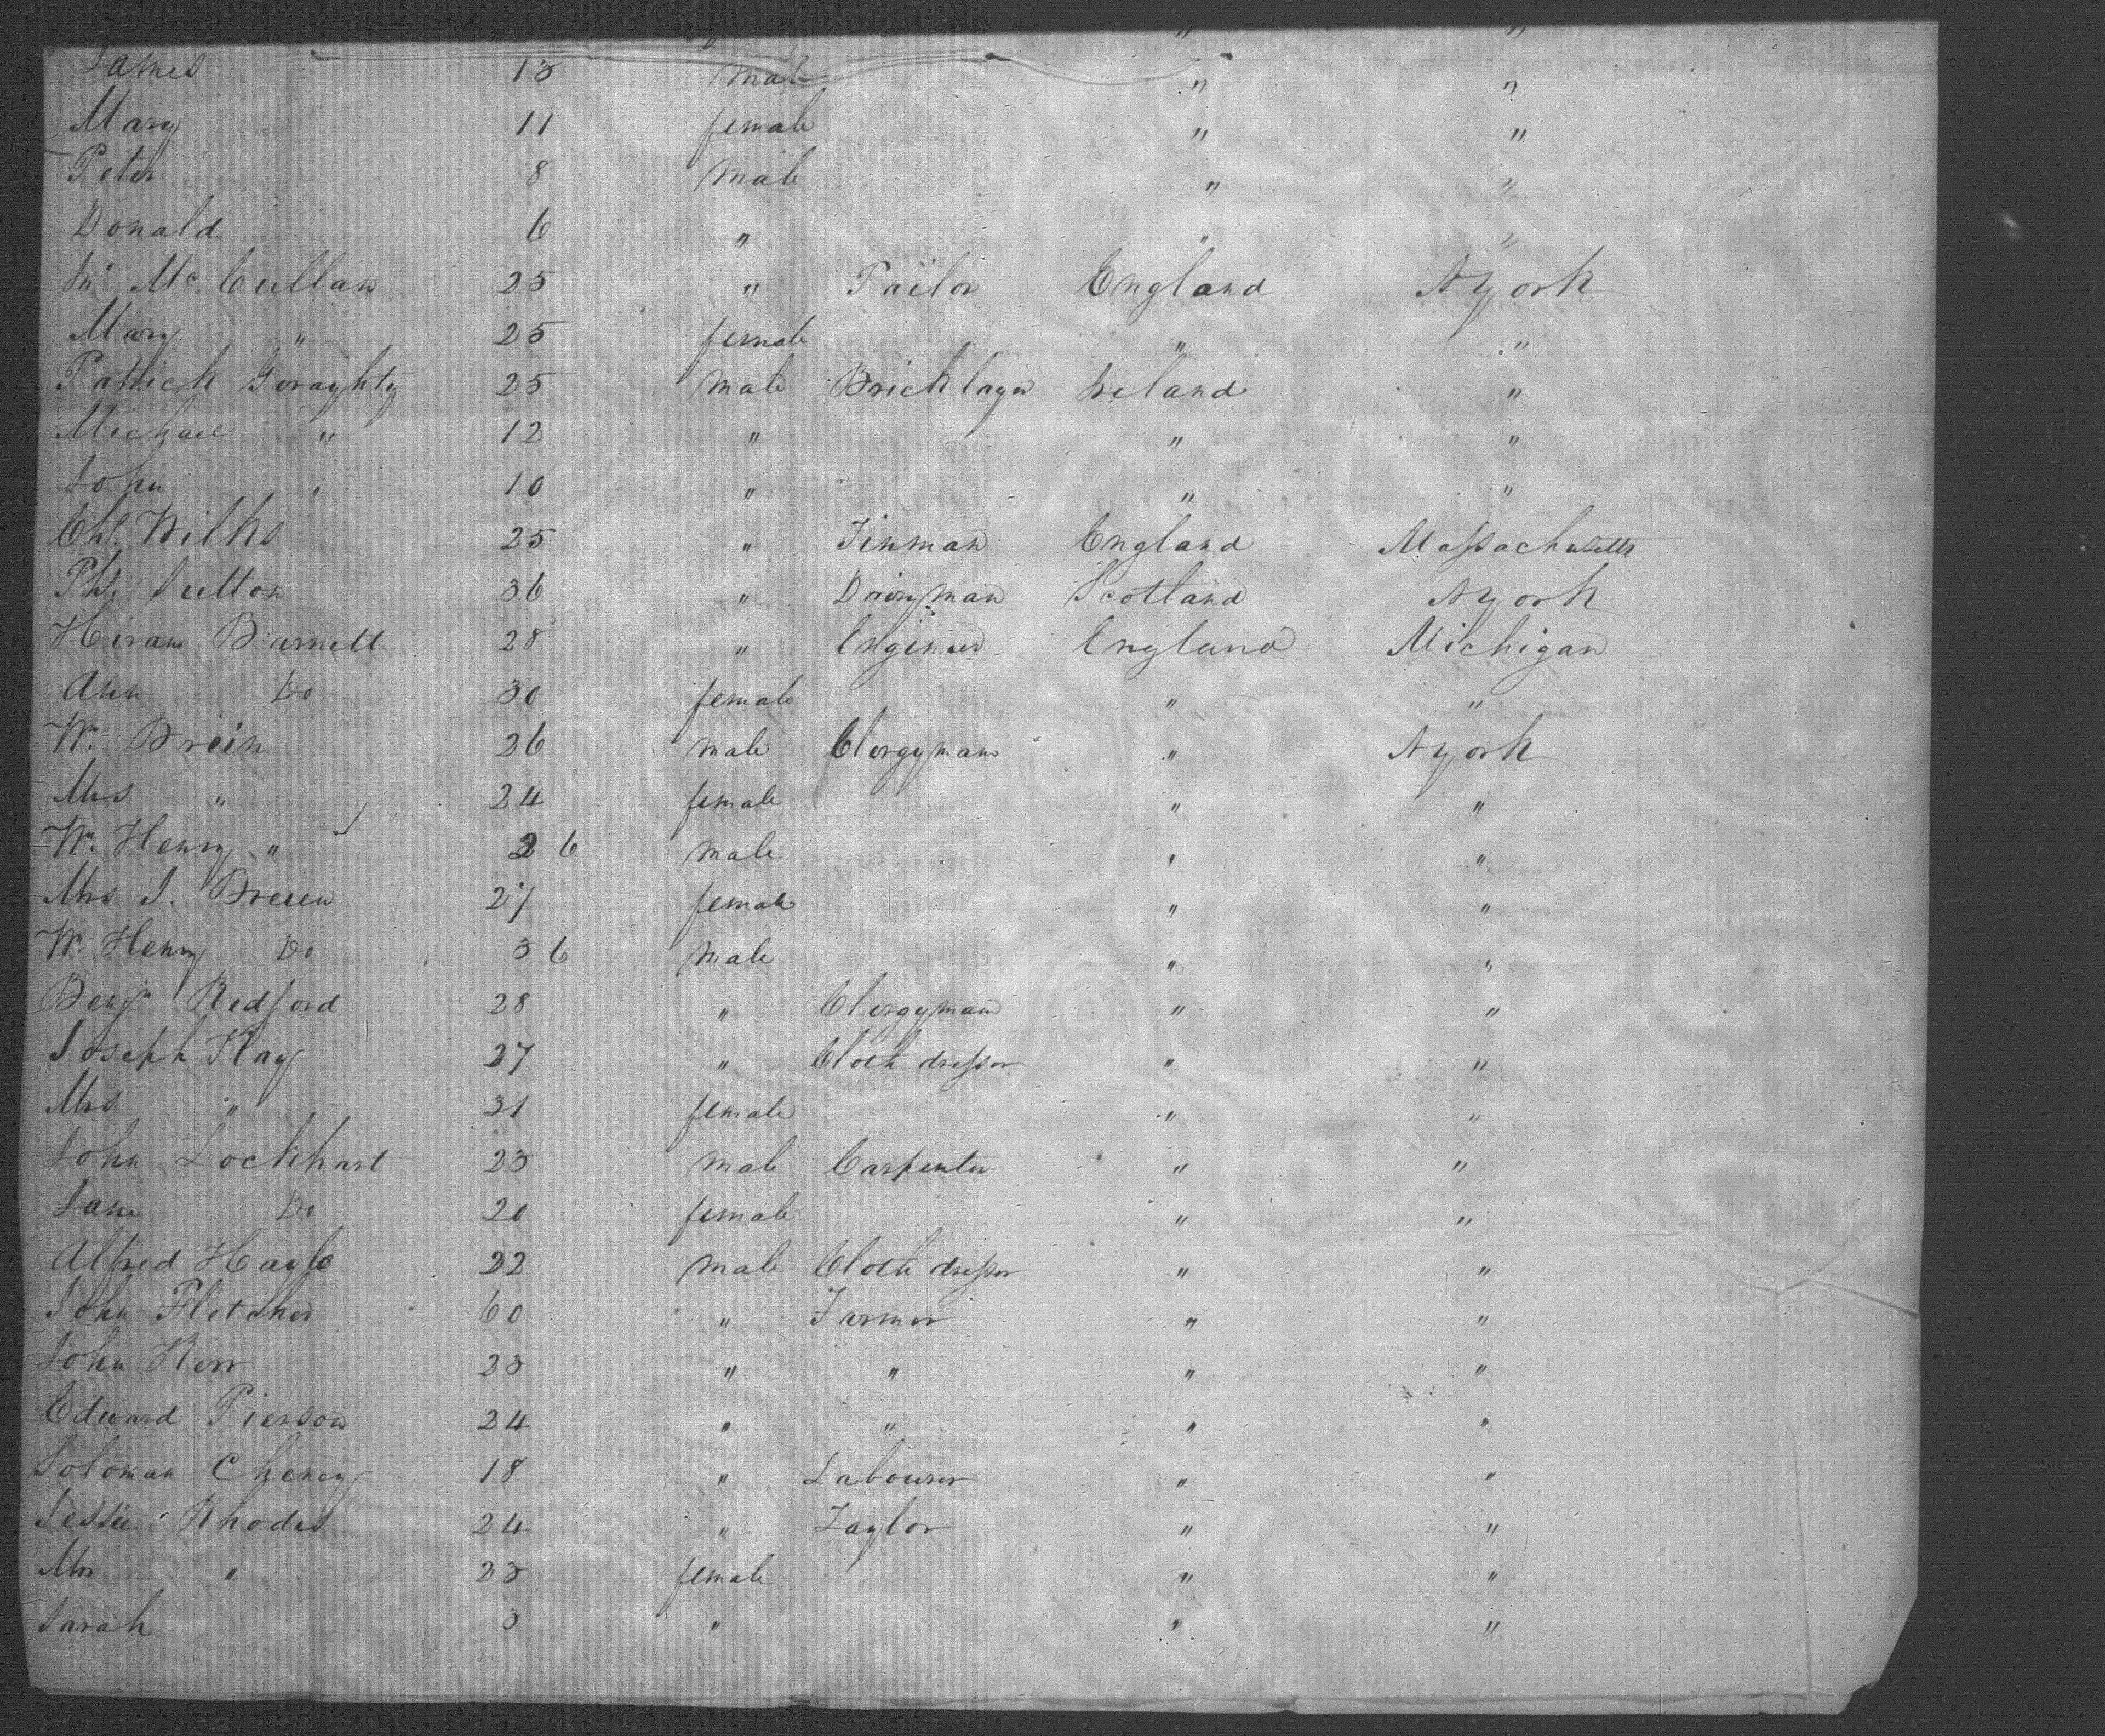 " "
James 13 male " "
Mary 11 female " "
Peter 8 male " "
Donald 6 " " "
Mc Cullan 25 " Tailor England NYork
Mary " 25 female " "
Patrick Geraghty 25 male Bricklayer Ireland "
Michael " 12 " " "
John " 10 " " "
Chs. Wilks 25 " Tinman England Massachusetts
Sutton 36 " Dairyman Scotland NYork
Hiram Barnett 28 " Engineer England Michigan
Ann Do 30 female " "
Wm. Brein 26 male Clergyman " NYork
Mrs " 24 female " "
Wm. Henry " 2 6 male " "
Mrs J. Breien 27 female " "
Wm. Henry Do 3 6 male " "
Benjn Redford 28 " Clergyman " "
Joseph Kay 27 " Cloth dresser " "
Mrs " 31 female " "
John Lockhart 23 male Carpenter " "
Jane Do 20 female " "
Alfred Hayle 22 male Cloth dresser " "
John Fletcher 60 " Farmer " "
John Kerr 23 " " " "
Edward Pierson 24 " " " "
Soloman Cheney 18 " Labourer " "
Jessee Rhodes 24 " Taylor " "
Mrs " 23 female " "
Sarah 3 " " "